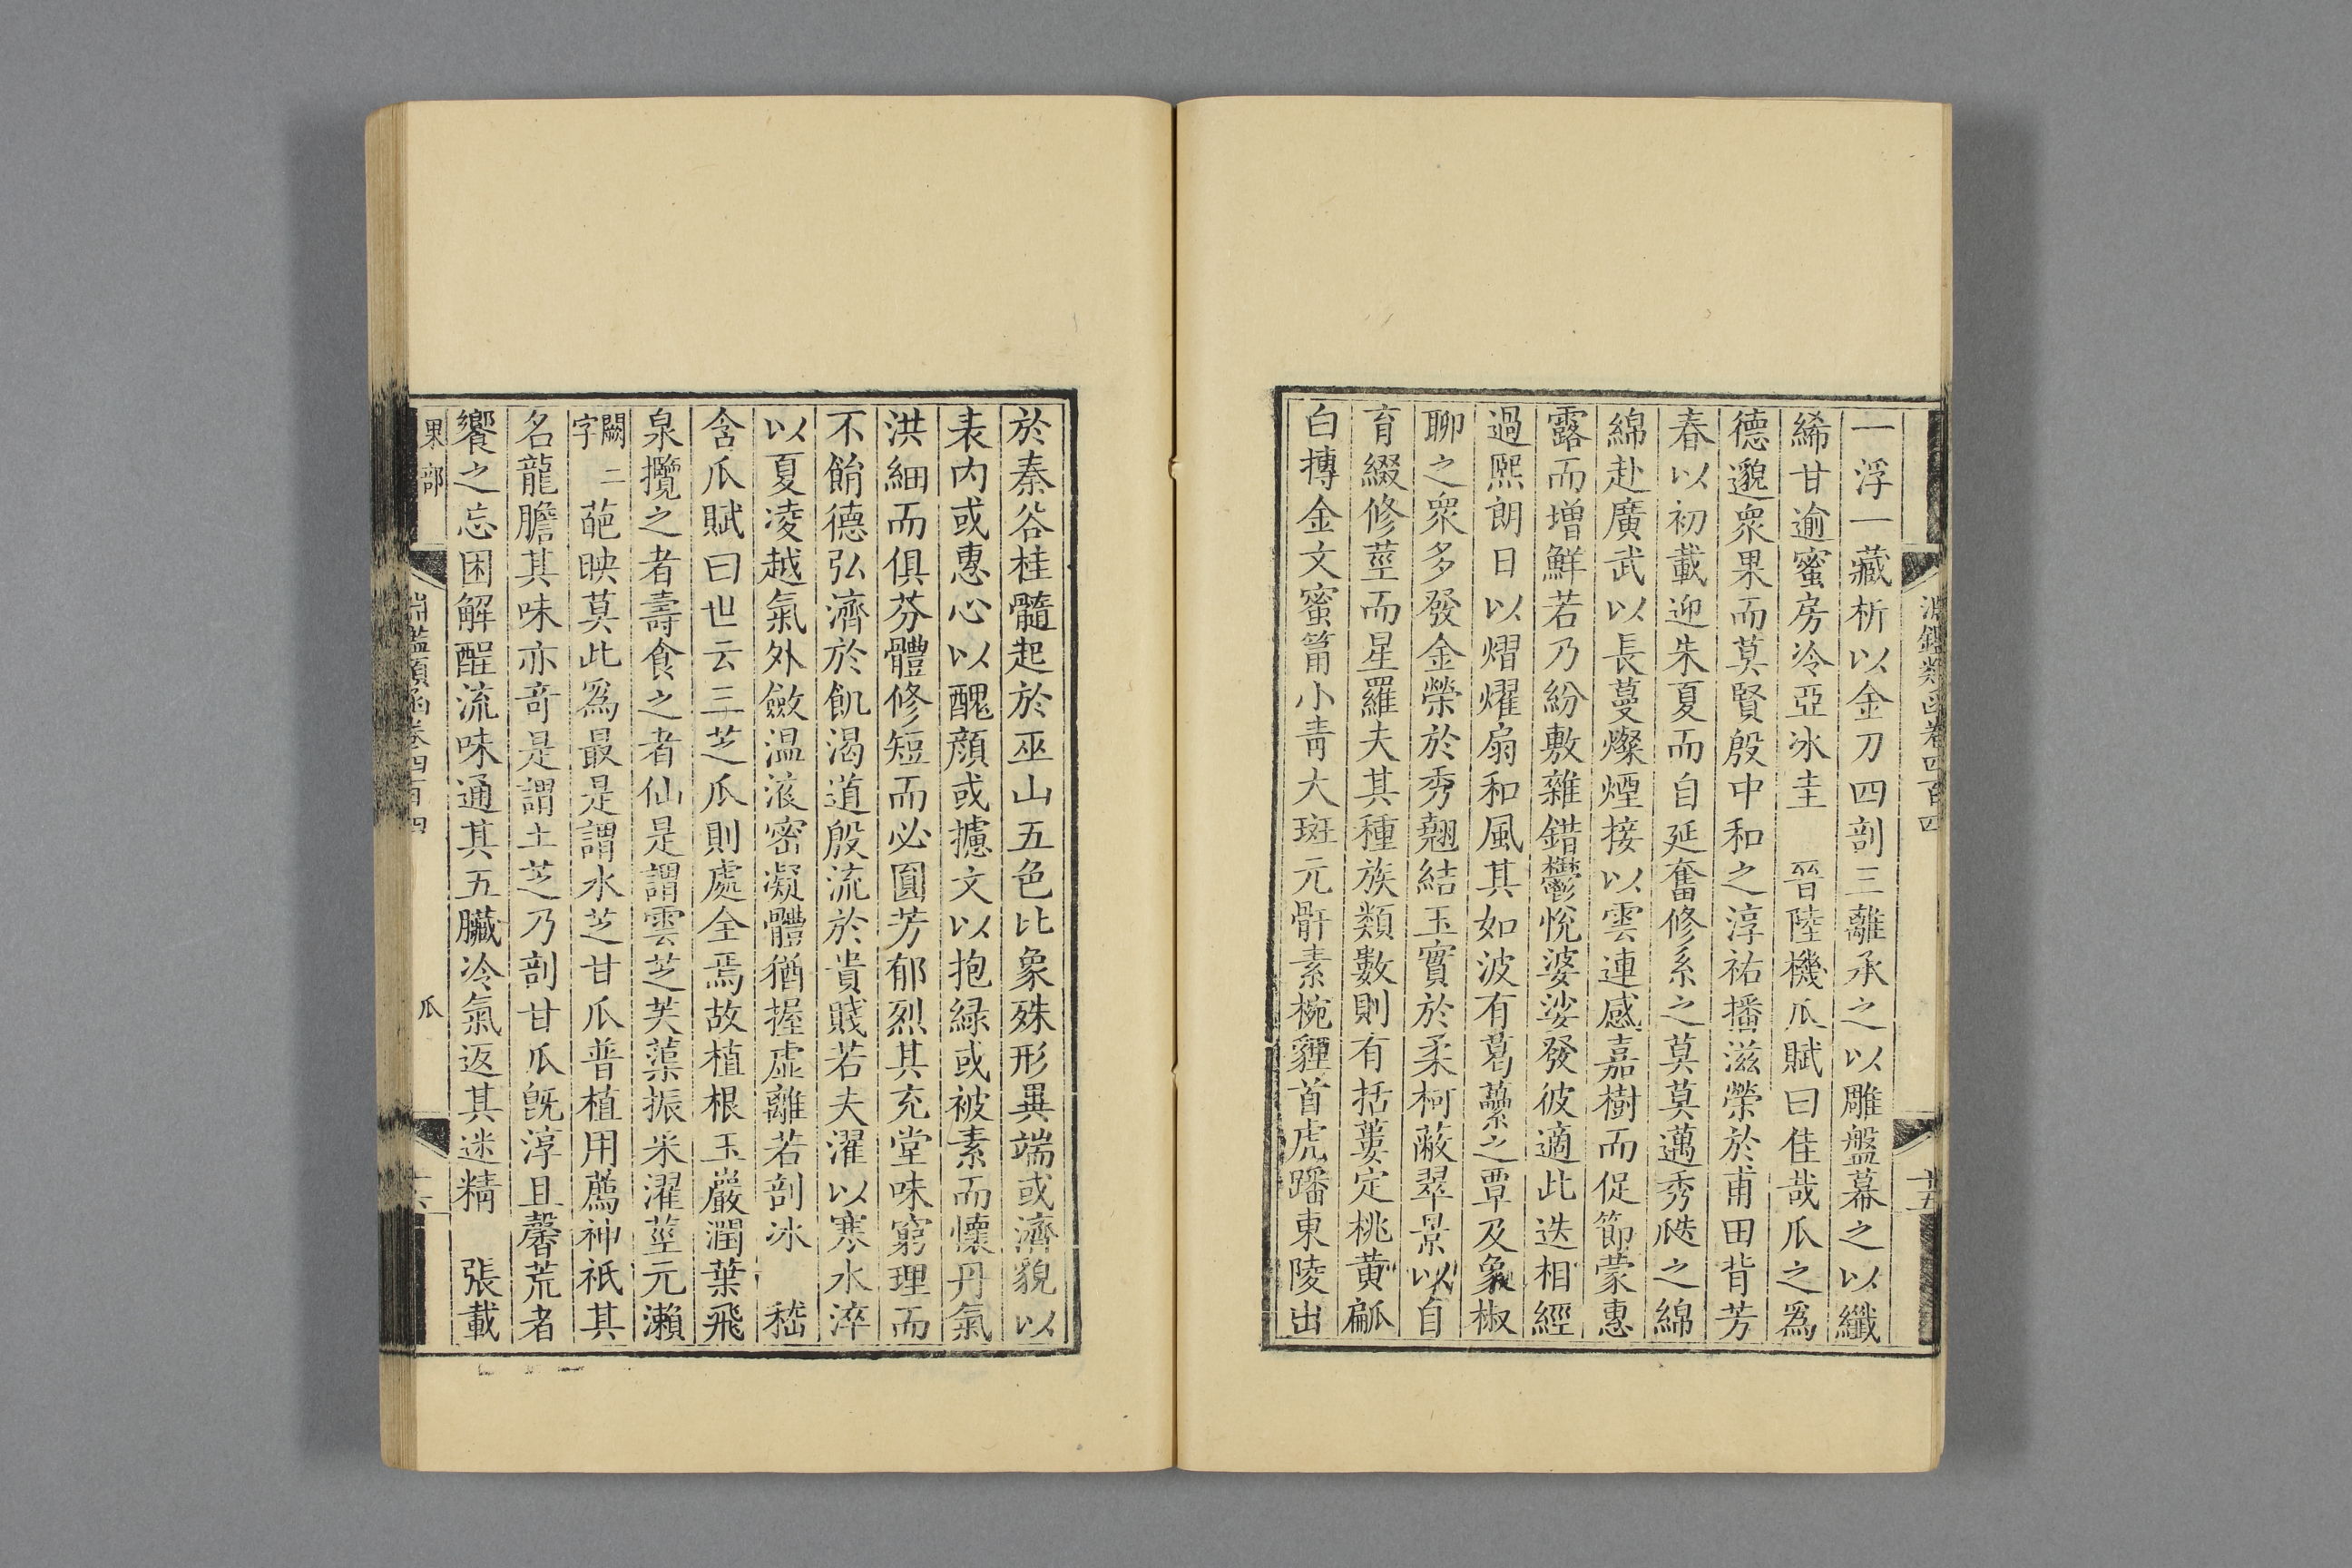 淵鑑類函卷四百四
十五
一浮一藏析以金刀四剖三離承之以雕盤幕之以纖
絺甘逾蜜房冷亞冰圭　晉陸機瓜賦曰佳哉瓜之爲
德邈衆果而莫賢殷中和之淳祐播滋榮於甫田背芳
春以初載迎朱夏而自延奮修系之莫莫邁秀瓞之綿
綿赴廣武以長蔓燦煙接以雲連感嘉樹而促節蒙惠
露而增鮮若乃紛敷雜錯鬱悅婆娑發彼適此迭相經
過熙朗日以熠燿扇和風其如波有葛虆之覃及象椒
聊之衆多發金榮於秀翹結玉實於柔柯蔽翠景以自
育綴修莖而星羅夫其種族類數則有括蔞定桃黃㼐
白摶金文蜜筩小靑大斑元骭素椀貍首虎蹯東陵出
於秦谷桂髓起於巫山五色比象殊形異端或濟貌以
表內或惠心以醜顏或攄文以抱綠或被素而懷丹氣
洪細而俱芬體修短而必圓芳郁烈其充堂味窮理而
不餉德弘濟於飢渴道殷流於貴賤若夫濯以寒水淬
以夏凌越氣外斂温液密凝體猶握虛離若剖冰　嵇
含瓜賦曰世云三芝瓜則處全焉故植根玉巖潤葉飛
泉攬之者壽食之者仙是謂雲芝芙蕖振采濯莖元瀨
闕二字葩映莫此爲最是謂水芝甘瓜普植用薦神祇其
名龍膽其味亦竒是謂土芝乃剖甘瓜旣淳且馨荒者
饗之忘困解酲流味通其五臟冷氣返其迷精　張載
果部
淵鑑類函卷四百四
瓜
十六